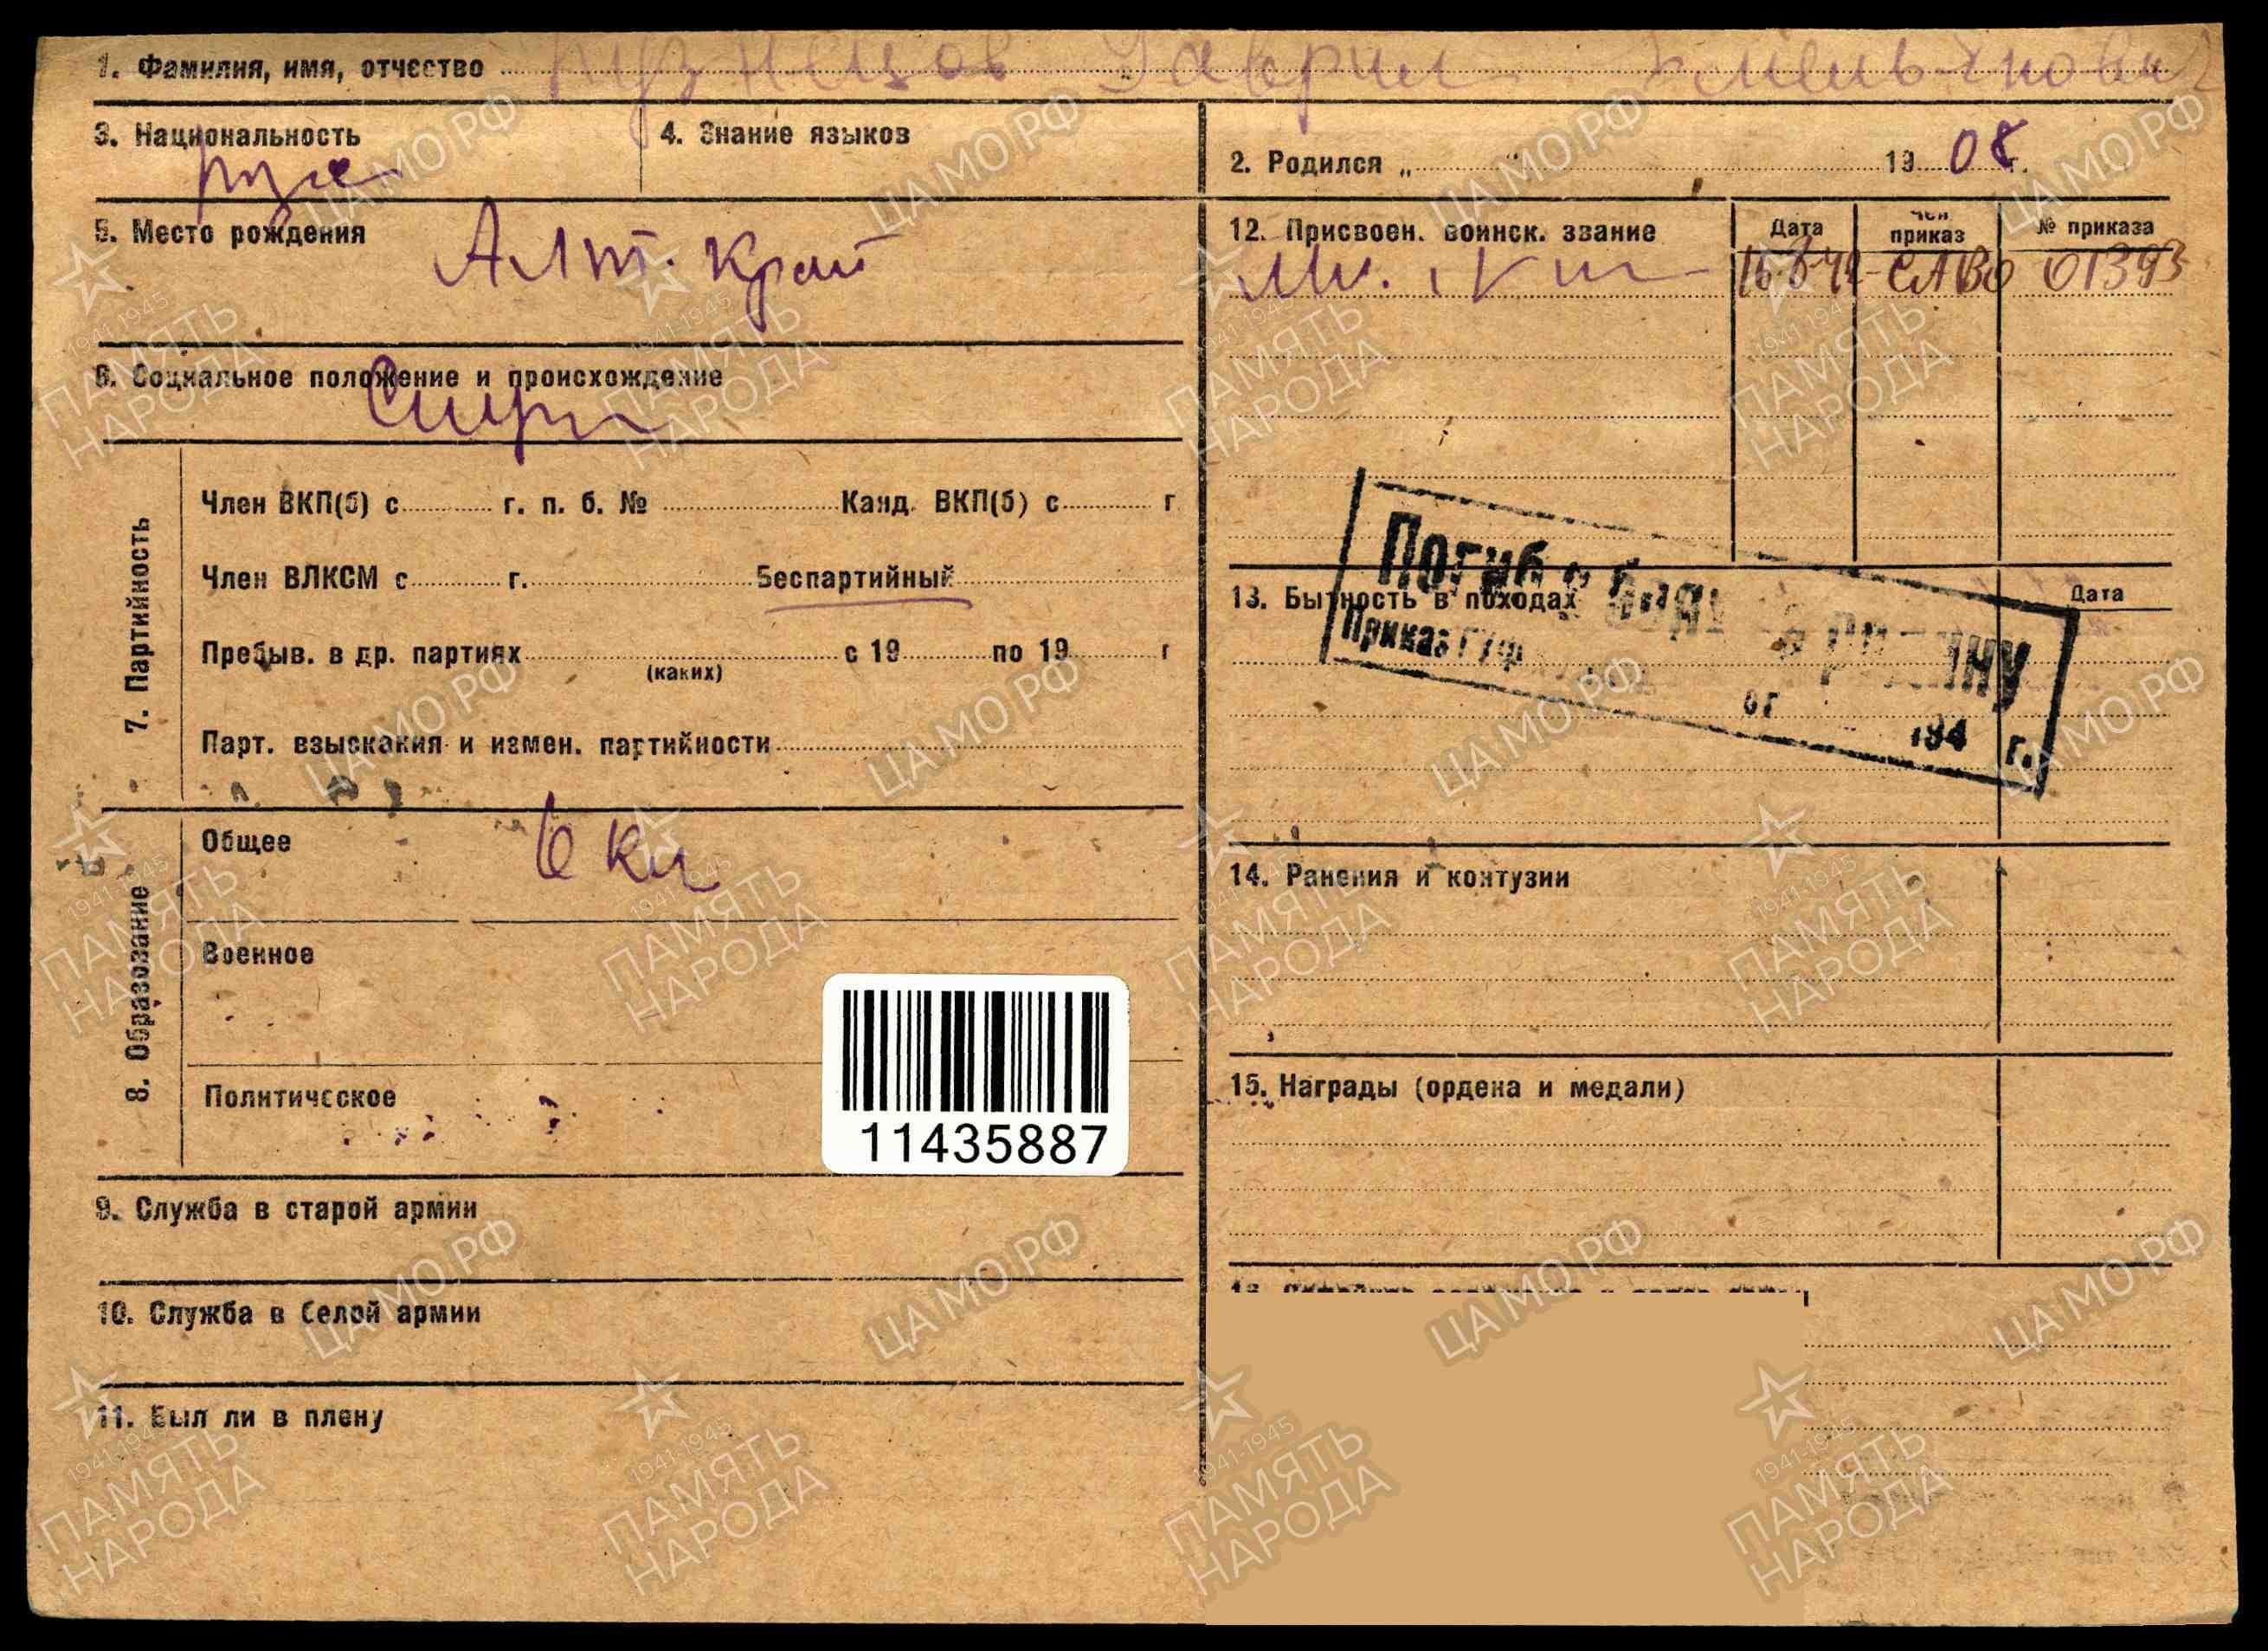 1. Фамилия, имя, отчество Кузнецов Гаврил Емельянович
3. Национальность
рус
4. Знание языков
2. Родился „ " 1908 г.
5. Место рождения
Алт. край
12. Присвоен. воинск. звание
Дата
Чей приказ
№ приказа
Мл. л-т
САВО 01393
6. Социальное положение и происхождение
7. Партийность
Член ВКП(б) с г. п. б. № Канд. ВКП(б) с г
Член ВЛКСМ с г. Беспартийный
Пребыв. в др. партиях с 19 по 19 г
(каких)
Парт. взыскания и измен. партийности
13. Бытность в походах
Дата
Погиб в боях за РОДИНУ
Приказ ГУФ
от 194 г.
8. Образование
Общее
6 кл
Военное
Политическое
14. Ранения и контузии
11435887
15. Награды (ордена и медали)
9. Служба в старой армии
10. Служба в белой армии
11. Был ли в плену
ЦАМО РФ
1941-1945
ПАМЯТЬ
НАРОДА